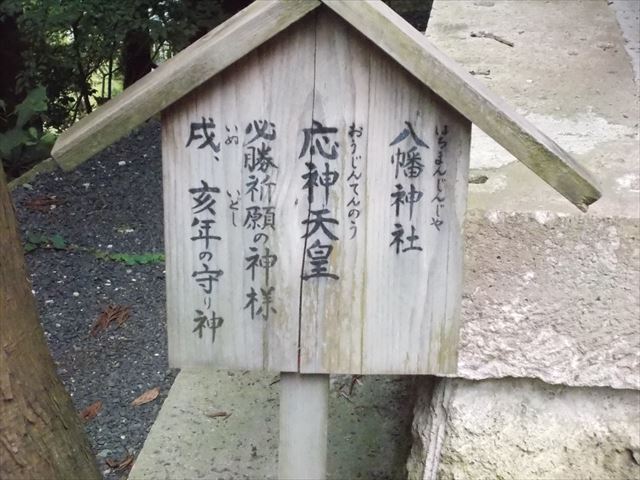 八幡神社
はちまんじんじゃ
応神天皇
おうじんてんのう
必勝祈願の神様
戌、亥年の守り神
いぬ いどし